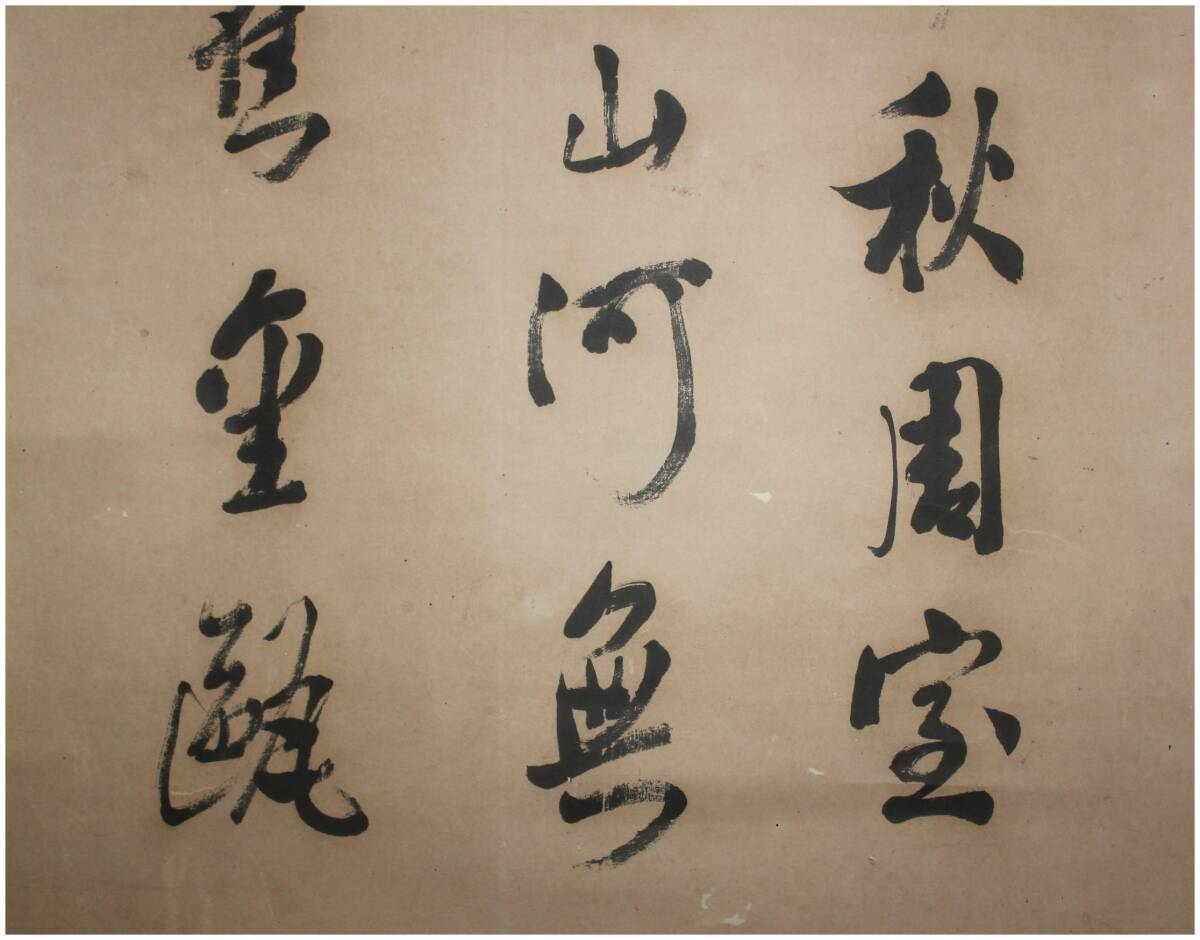 秋周室
山河無
金甌